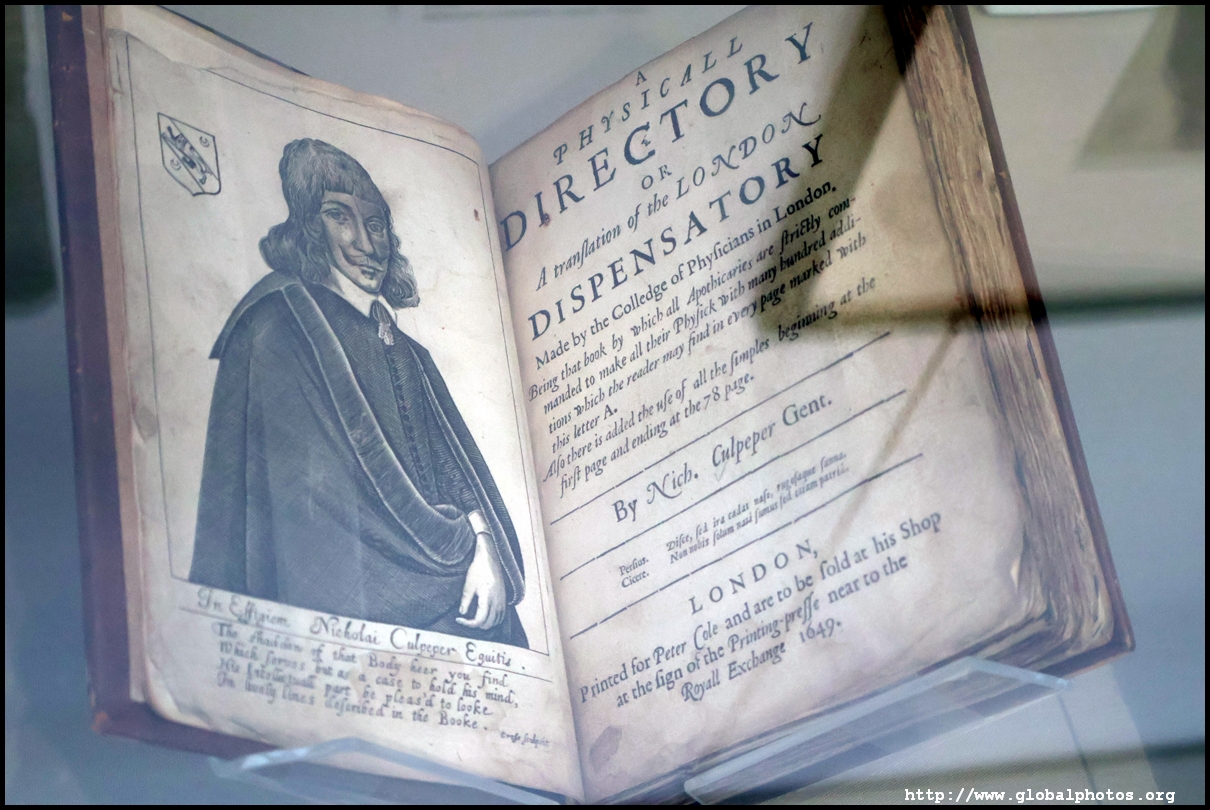 In Effigiem Nicholai Culpeper Equitis.
The shaddow of that Body heer you find
Which serves but as a case to hold his mind,
His Intellectuall part be pleas'd to looke
In lively lines described in the Booke.
Cross sculpsit
A
PHYSICALL
DIRECTORY
OR
A tranſlation of the LONDON
DISPENSATORY
Made by the Colledge of Phyſicians in London.
Being that book by which all Apothicaries are ſtrictly com-
manded to make all their Phyſick with many hundred addi-
tions which the reader may find in every page marked with
this letter A.
Alſo there is added the uſe of all the ſimples beginning at the
firſt page and ending at the 78 page.
By Nich. Culpeper Gent.
Perſius. Diſce, ſed ira cadat naſo, rugoſaque ſanna.
Cicero. Non nobis ſolum nati ſumus ſed etiam patriæ.
LONDON,
Printed for Peter Cole and are to be ſold at his Shop
at the ſign of the Printing-preſſe near to the
Royall Exchange 1649.
http://www.globalphotos.org